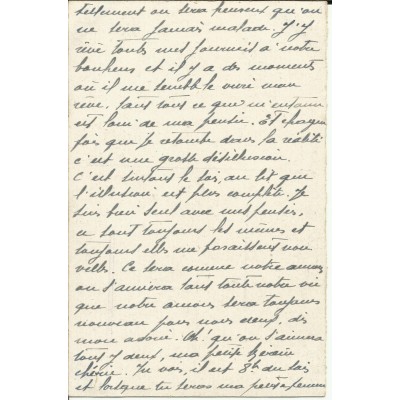 tellement on sera peureux qu'on
ne sera jamais malade. J'y
rêve toutes mes journées à notre
bonheur et il y a des moments
où il me semble le vivre mon
rêve. tant tout ce que m'entoure
est loin de ma pensée. Et chaque
fois que je retombe dans la réalité
c'est une grosse désillusion.
C'est surtout le soir, au lit que
l'illusion est plus complète. Je
suis bien seul avec mes pensées,
ce sont toujours les mêmes et
toujours elles me paraissent nou
velles. Ce sera comme notre amour
on s'aimera tant toute notre vie
que notre amour sera toujours
nouveau pour nous deux, dis
mon adorée. Oh! qu'on s'aimera
tous y deux, ma petite
chérie. Tu vois, il est 8h du soir
et lorsque tu seras ma petite femme